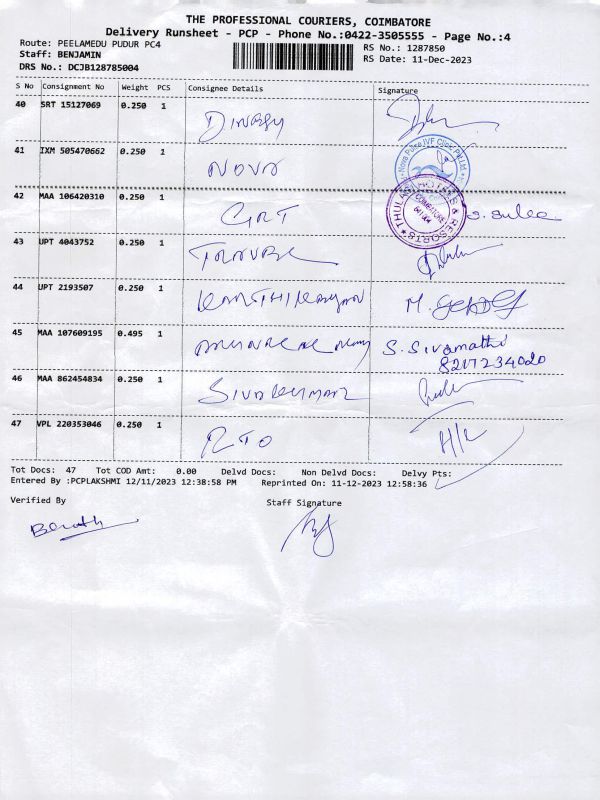 THE PROFESSIONAL COURIERS, COIMBATORE
Delivery Runsheet - PCP - Phone No.:0422-3505555 - Page No.:4
Route: PEELAMEDU PUDUR PC4
RS No.: 1287850
Staff: BENJAMIN
RS Date: 11-Dec-2023
DRS No.: DCJB128785004
S No Consignment No Weight PCS Consignee Details Signature
40 SRT 15127069 0.250 1
41 IXM 505470662 0.250 1 NOVA
42 MAA 106420310 0.250 1 GRT
43 UPT 4043752 0.250 1
44 UPT 2193507 0.250 1 KARTHIKEYAN
45 MAA 107609195 0.495 1 S. Sivamathi
8217234020
46 MAA 862454834 0.250 1 SIVAKUMAR
47 VPL 220353046 0.250 1 RTO H/R
Tot Docs: 47 Tot COD Amt: 0.00 Delvd Docs: Non Delvd Docs: Delvy Pts:
Entered By :PCPLAKSHMI 12/11/2023 12:38:58 PM Reprinted On: 11-12-2023 12:58:36
Verified By
Staff Signature